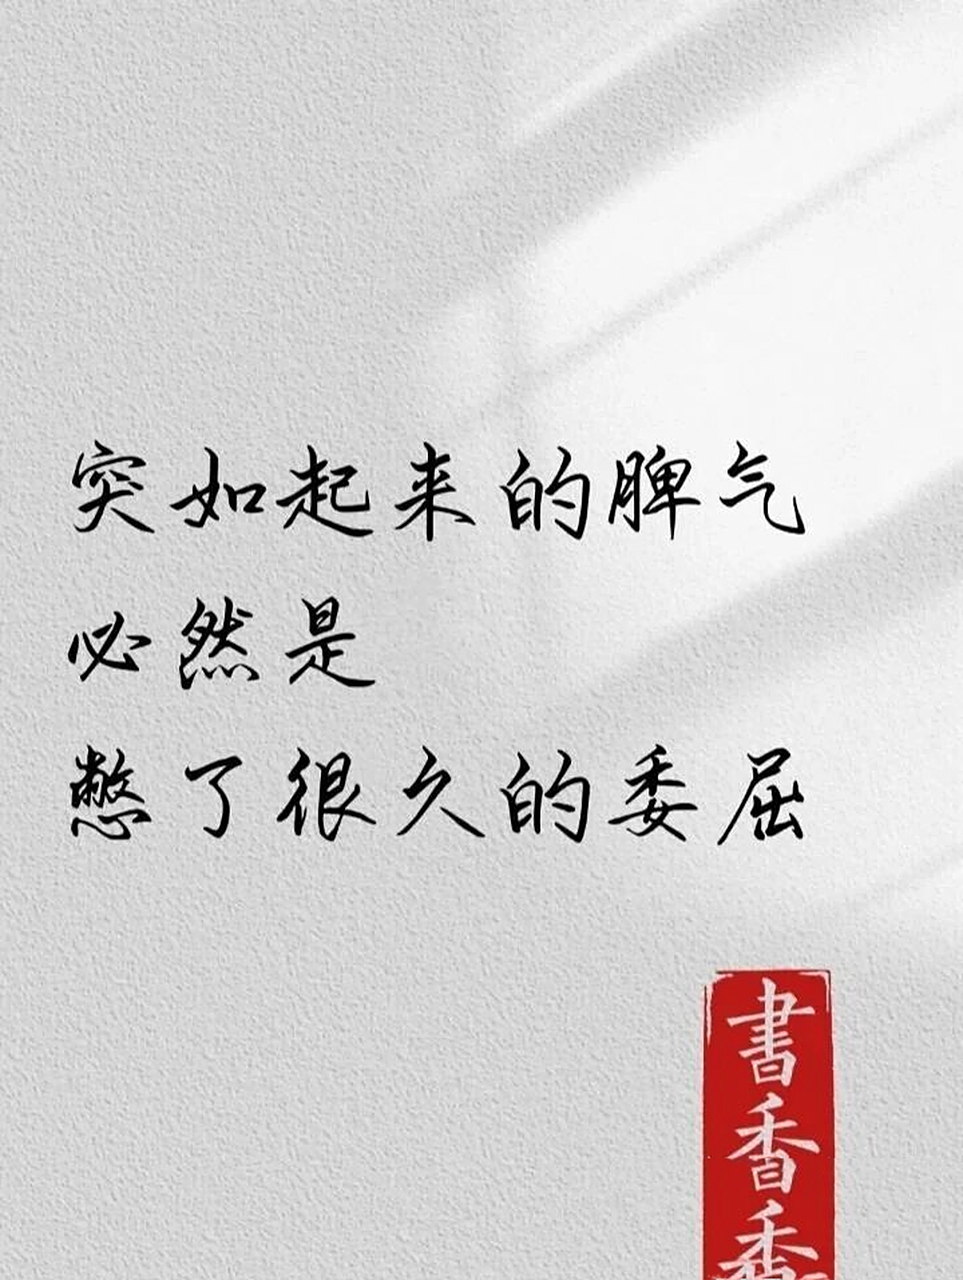 突如起来的脾气
必然是
憋了很久的委屈
書香